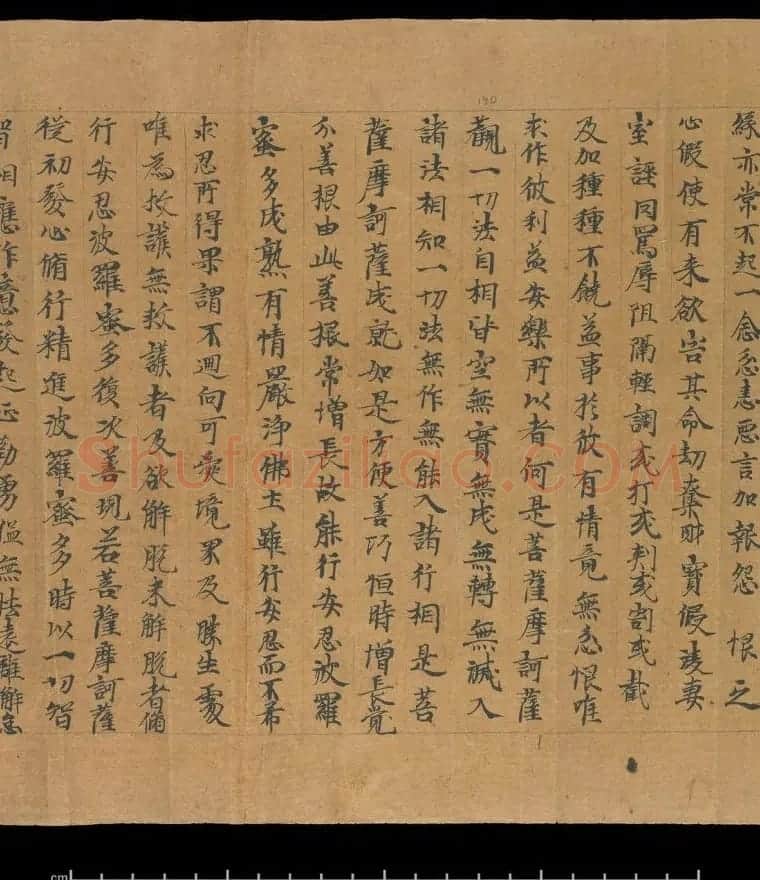 緣亦常不起一念忿恚惡言加報怨恨之
心假使有来欲害其命劫奪財寶假淩妻
室誣罔罵辱阻隔輕調或打或刺或割或截
及加種種不饒益事於彼有情竟無忿恨唯
求作彼利益安樂所以者何是菩薩摩訶薩
觀一切法自相皆空無實無成無轉無滅入
諸法相知一切法無作無能入諸行相是菩
薩摩訶薩成就如是方便善巧恒時增長覺
分善根由此善根常增長故能行安忍波羅
蜜多成熟有情嚴淨佛土雖行安忍而不希
求忍所得果謂不迴向可愛境界及勝生處
唯為救護無救護者及欲解脫未解脫者俻
行安忍波羅蜜多復次善現若菩薩摩訶薩
從初發心脩行精進波羅蜜多時以一切智
智相應作意發起正勤勇猛無怯遠離懈怠
190
Shufaziliao.com
cm